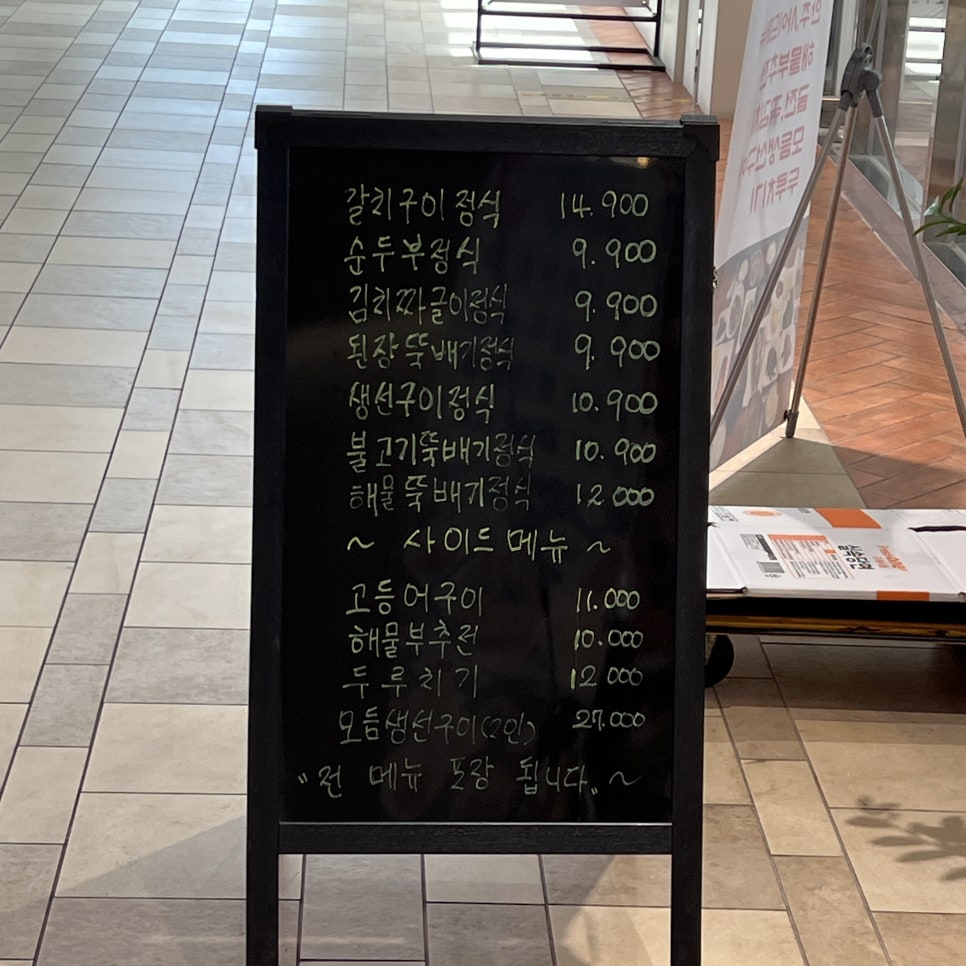 갈치구이정식 14.900
순두부정식 9.900
김치짜글이정식 9.900
된장뚝배기정식 9.900
생선구이정식 10.900
불고기뚝배기정식 10.900
해물뚝배기정식 12.000
~ 사이드메뉴 ~
고등어구이 11.000
해물부추전 10.000
두루치기 12.000
모듬생선구이(2인) 27.000
"전 메뉴 포장 됩니다" ~
해물부추전
두루치기